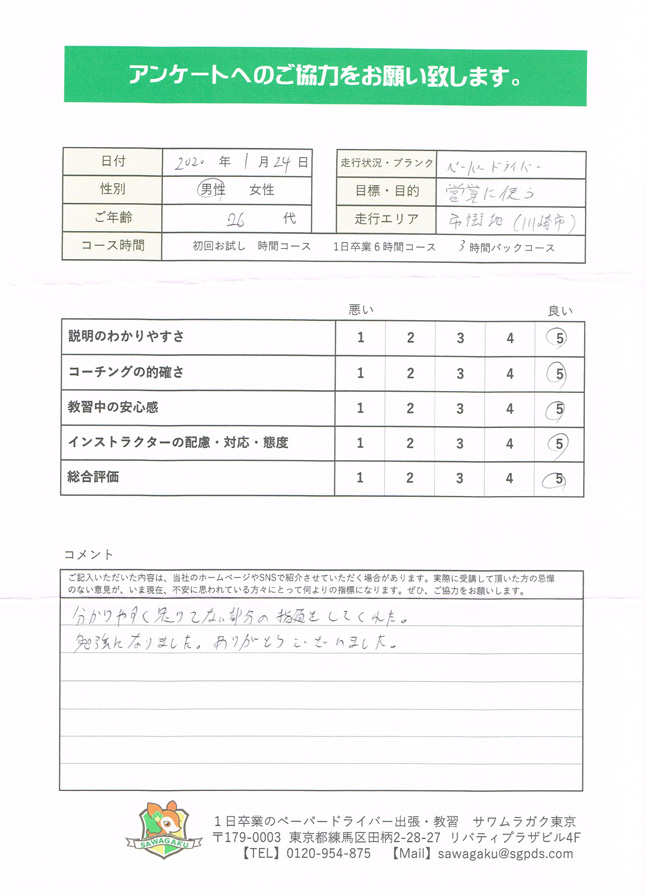 アンケートへのご協力をお願い致します。
日付 2020 年 1 月 24 日 走行状況・ブランク ペーパードライバー
性別 男性 女性 目標・目的 営業に使う
ご年齢 26 代 走行エリア 市街地（川崎市）
コース時間 初回お試し 時間コース 1日卒業6時間コース 3 時間パックコース
悪い 良い
説明のわかりやすさ 1 2 3 4 5
コーチングの的確さ 1 2 3 4 5
教習中の安心感 1 2 3 4 5
インストラクターの配慮・対応・態度 1 2 3 4 5
総合評価 1 2 3 4 5
コメント
ご記入いただいた内容は、当社のホームページやSNSで紹介させていただく場合があります。実際に受講して頂いた方の忌憚
のない意見が、いま現在、不安に思われている方々にとって何よりの指標になります。ぜひ、ご協力をお願いします。
分かりやすく足りてない部分の指摘をしてくれた。
勉強になりました。ありがとうございました。
SAWAGAKU
1日卒業のペーパードライバー出張・教習 サワムラガク東京
〒179-0003 東京都練馬区田柄2-28-27 リバティプラザビル4F
【TEL】0120-954-875 【Mail】sawagaku@sgpds.com